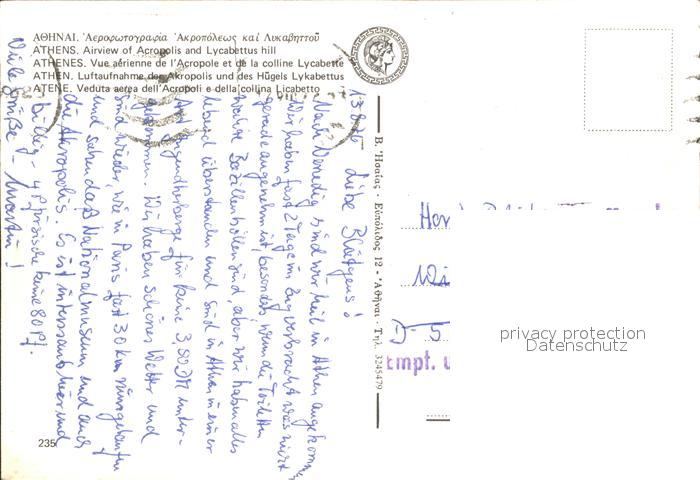 ΑΘΗΝΑΙ. Ἀεροφωτογραφία Ἀκροπόλεως καί Λυκαβηττοῦ
ATHENS. Airview of Acropolis and Lycabettus hill
ATHENES. Vue aérienne de l'Acropole et de la colline Lycabette
ATHEN. Luftaufnahme der Akropolis und des Hügels Lykabettus
ATENE. Veduta aerea dell'Acropoli e della colina Licabetto
Liebe Blätgens!
Nach Venedig sind wir heil in Athen angekomm
Wir haben fast 2 Tage im Zug verbracht was nicht
gerade angenehm ist besonders, wenn die Toiletten
Bazillenhöllen sind, aber wir haben alles
lebend überstanden und sind in Athen in einer
Jugendherberge für keine 3,80 DM unter-
gekommen. Wir haben schönes Wetter und
sind wieder, wie in Paris fast 30 km rumgelaufen
und sahen das Nationalmuseum und auch
die Akropolis. Es ist interessant hier und
billig - 4 Pfirsiche keine 80 Pf.
Viele Grüße - Martin!
235
Β. Ἡσαΐας - Εὐπόλιδος 12 - Ἀθῆναι - Τηλ. 3245479
Wi
D-5
Empf. u
privacy protection
Datenschutz